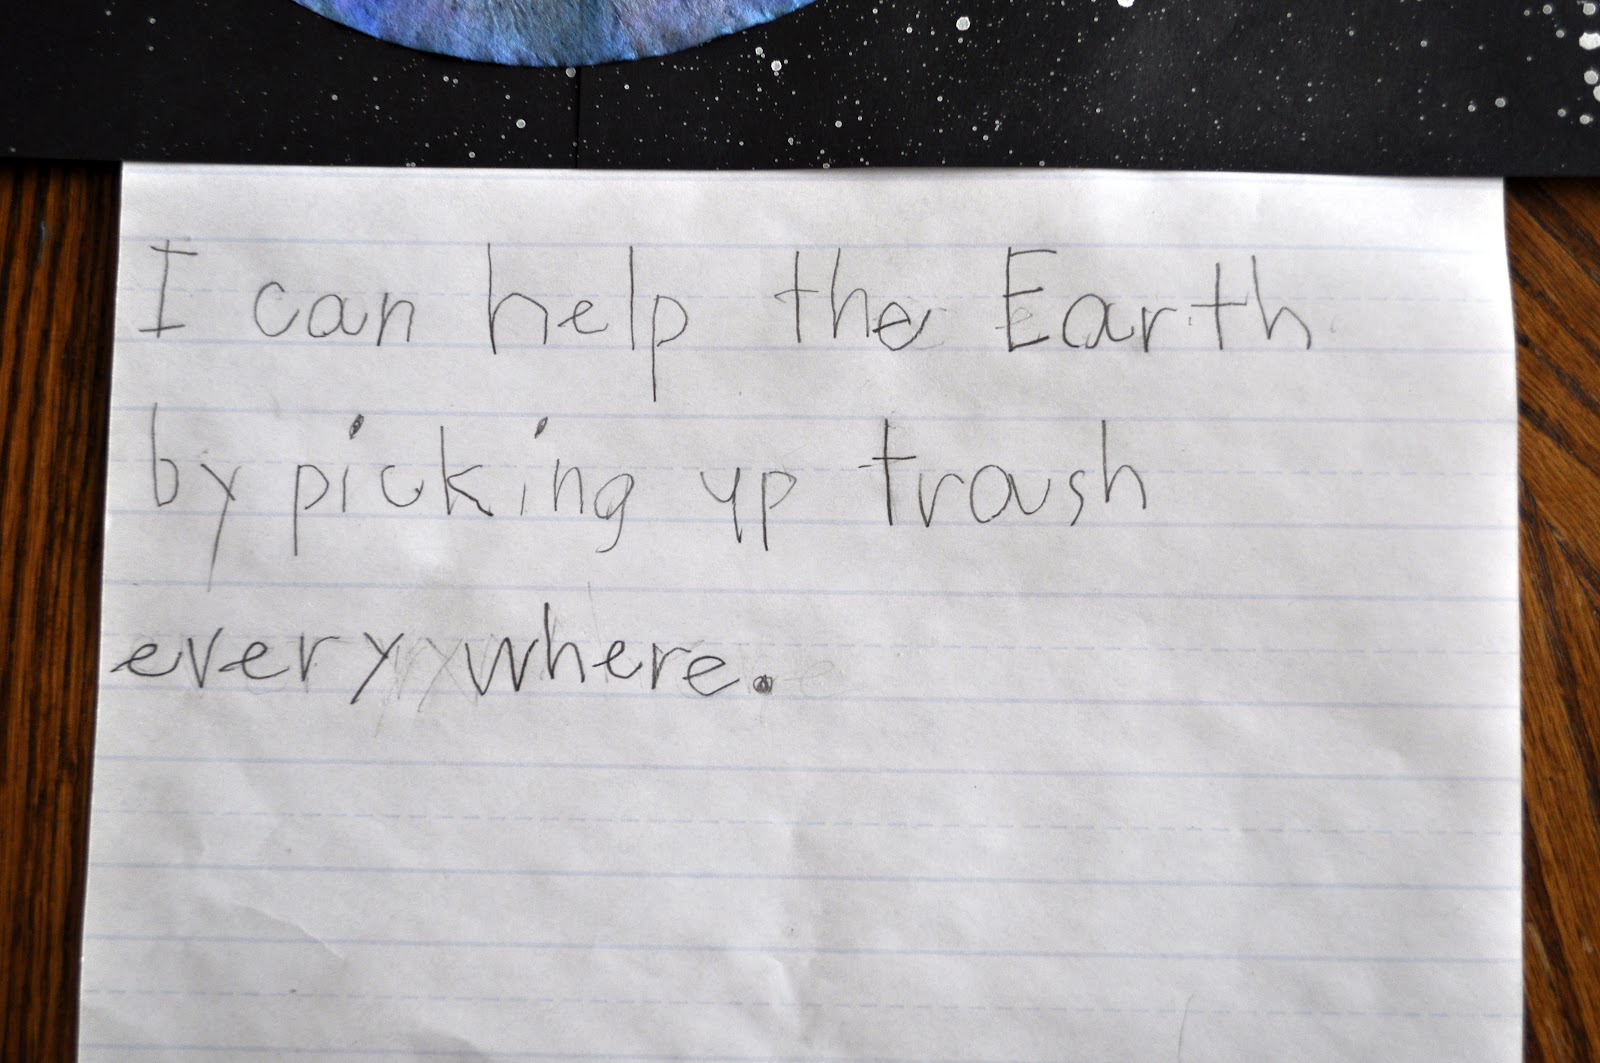 I can help the Earth
by picking up trash
every where.